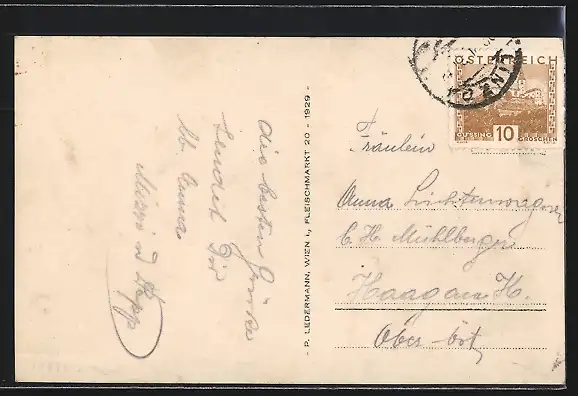 die besten Grüße
sendet Dir
lb. Anna
Mizzi u Sepp
- P. LEDERMANN, WIEN I., FLEISCHMARKT 20 - 1929 -
ÖSTERREICH
GÜSSING 10 GROSCHEN
LINZ
Fräulein
Anna Lichtenwagner
b. H. Mühlberger
Haag am H.
Ober-Öst.